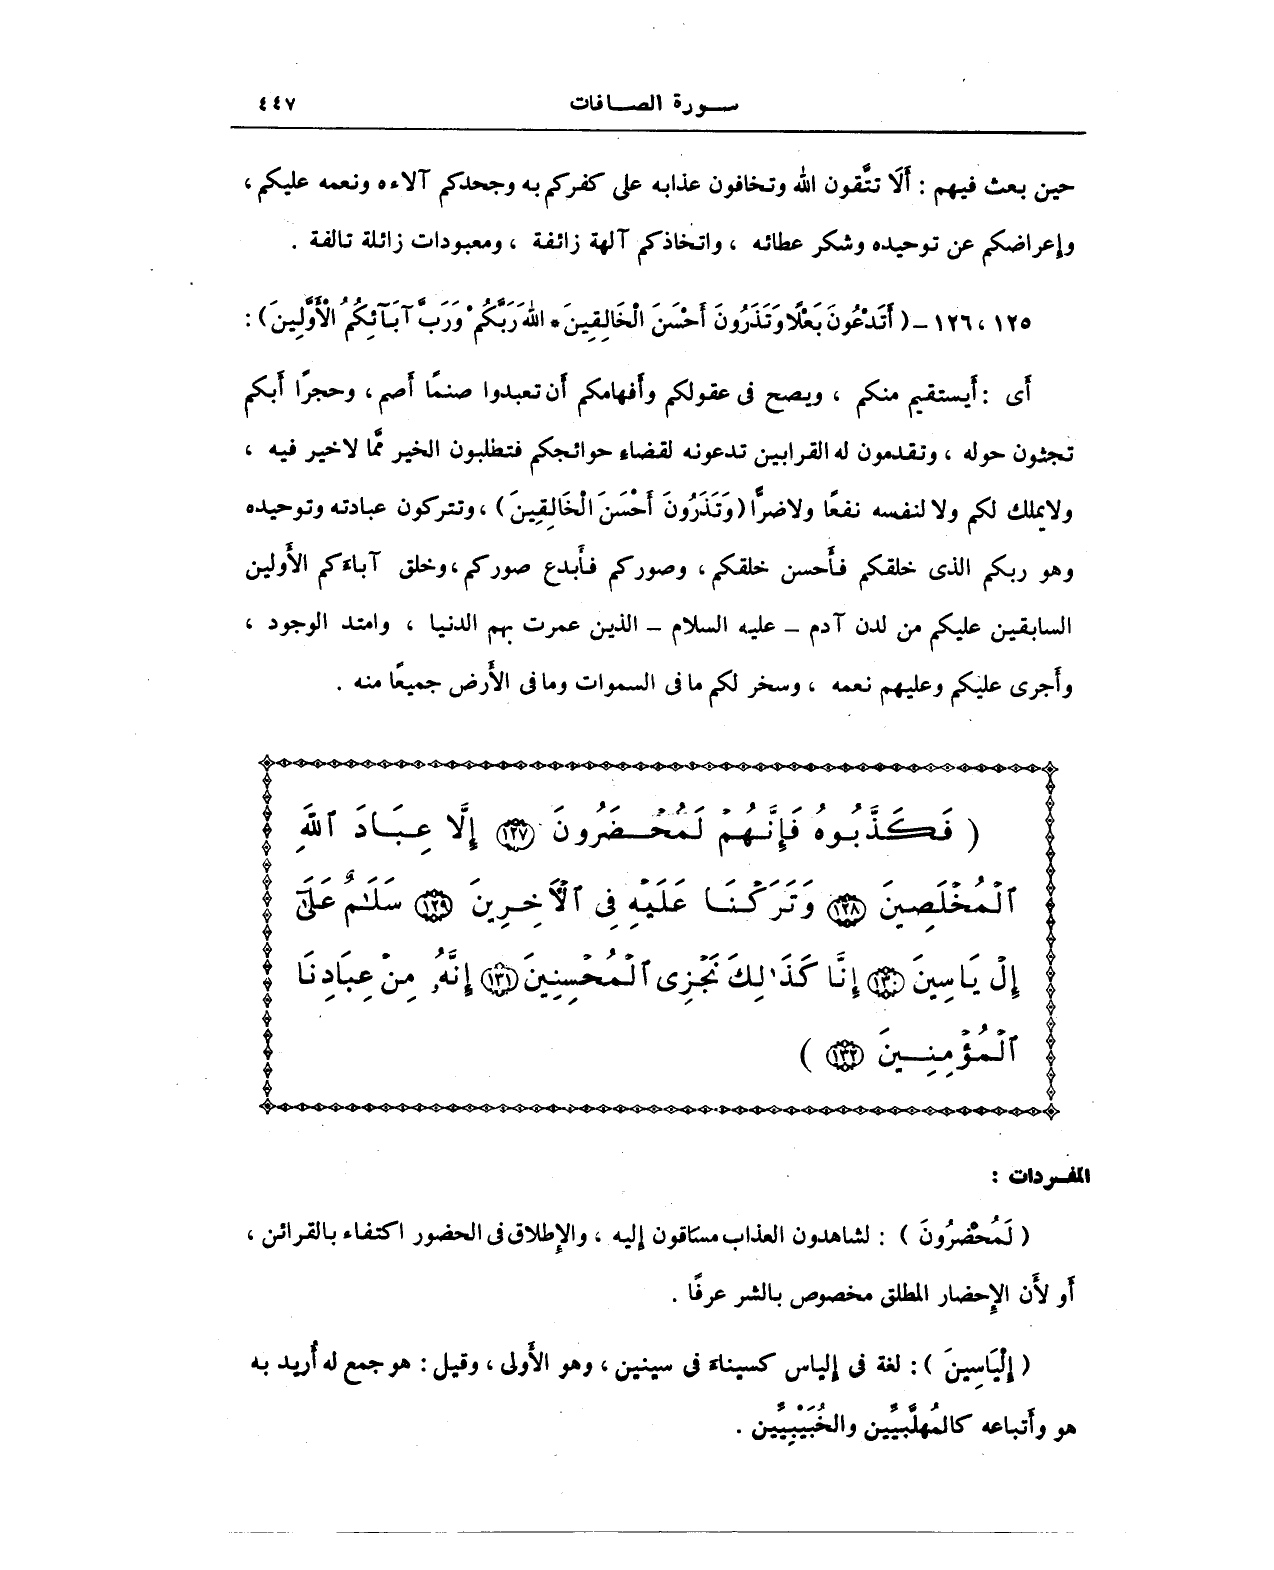 سورة الصافات ٤٤٧
حين بعث فيهم : أَلَا تتَّقون الله وتخافون عذابه على كفركم به وجحدكم آلاءه ونعمه عليكم ،
وإعراضكم عن توحيده وشكر عطائه ، واتخاذكم آلهة زائفة ، ومعبودات زائلة تالفة .
١٢٥ ، ١٢٦ – ( أَتَدْعُونَ بَعْلًا وَتَذَرُونَ أَحْسَنَ الْخَالِقِينَ * اللهَ رَبَّكُمْ وَرَبَّ آبَآئِكُمُ الْأَوَّلِينَ ) :
أَى : أَيستقيم منكم ، ويصح فى عقولكم وأَفهامكم أَن تعبدوا صنمًا أَصم ، وحجرًا أَبكم
تجثون حوله ، وتقدمون له القرابين تدعونه لقضاء حوائجكم فتطلبون الخير ممَّا لا خير فيه ،
ولا يملك لكم ولا لنفسه نفعًا ولا ضرًّا ( وَتَذَرُونَ أَحْسَنَ الْخَالِقِينَ ) ، وتتركون عبادته وتوحيده
وهو ربكم الذى خلقكم فأَحسن خلقكم ، وصوركم فأَبدع صوركم ، وخلق آباءكم الأَولين
السابقين عليكم من لدن آدم – عليه السلام – الذين عمرت بهم الدنيا ، وامتد الوجود ،
وأَجرى عليكم وعليهم نعمه ، وسخر لكم ما فى السموات وما فى الأَرض جميعًا منه .
( فَكَذَّبُوهُ فَإِنَّهُمْ لَمُحْضَرُونَ ١٢٧ إِلَّا عِبَادَ ٱللَّهِ
ٱلْمُخْلَصِينَ ١٢٨ وَتَرَكْنَا عَلَيْهِ فِى ٱلْآخِرِينَ ١٢٩ سَلَـٰمٌ عَلَىٰٓ
إِلْ يَاسِينَ ١٣٠ إِنَّا كَذَٰلِكَ نَجْزِى ٱلْمُحْسِنِينَ ١٣١ إِنَّهُۥ مِنْ عِبَادِنَا
ٱلْمُؤْمِنِينَ ١٣٢ )
المفردات :
( لَمُحْضَرُونَ ) : لشاهدون العذاب مساقون إليه ، والإطلاق فى الحضور اكتفاء بالقرائن ،
أَو لأَن الإِحضار المطلق مخصوص بالشر عرفًا .
( إِلْيَاسِينَ ) : لغة فى إلياس كسيناء فى سينين ، وهو الأَولى ، وقيل : هو جمع له أُريد به
هو وأَتباعه كالمُهلَّبيِّين والخُبَيْبِيِّين .